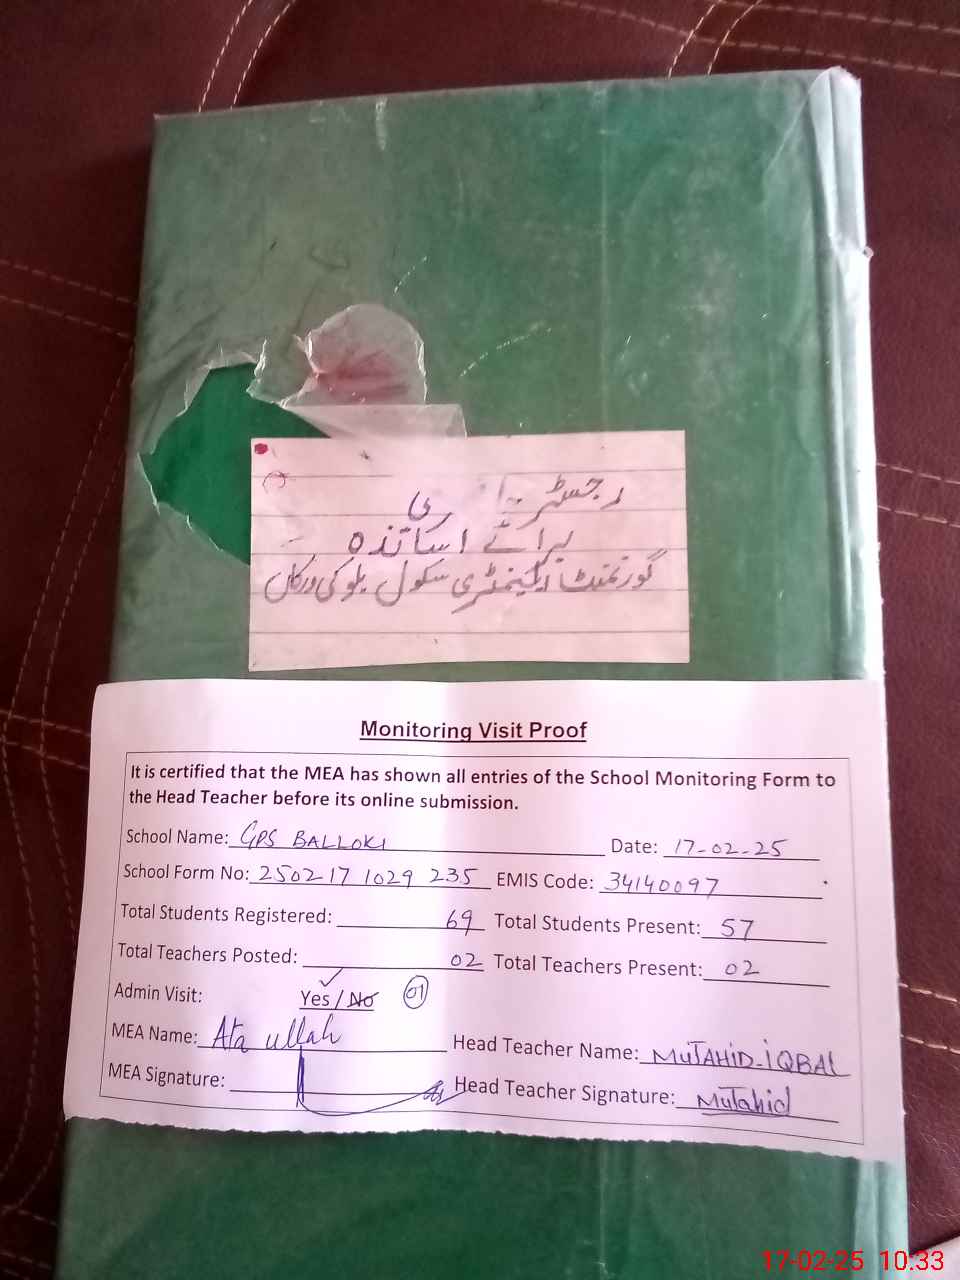 رجسٹر
برائے اساتذہ
گورنمنٹ ایلیمنٹری سکول بلوکی ورکاں
Monitoring Visit Proof
It is certified that the MEA has shown all entries of the School Monitoring Form to
the Head Teacher before its online submission.
School Name: GPS BALLOKI Date: 17-02-25
School Form No: 2502 17 1029 235 EMIS Code: 34140097
Total Students Registered: 69 Total Students Present: 57
Total Teachers Posted: 02 Total Teachers Present: 02
Admin Visit: Yes / No 01
MEA Name: Ata ullah Head Teacher Name: MUTAHID IQBAL
MEA Signature: Head Teacher Signature: Mutahid
17-02-25 10:33